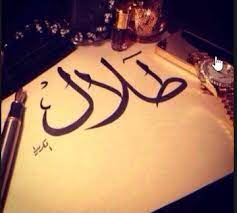 طلال